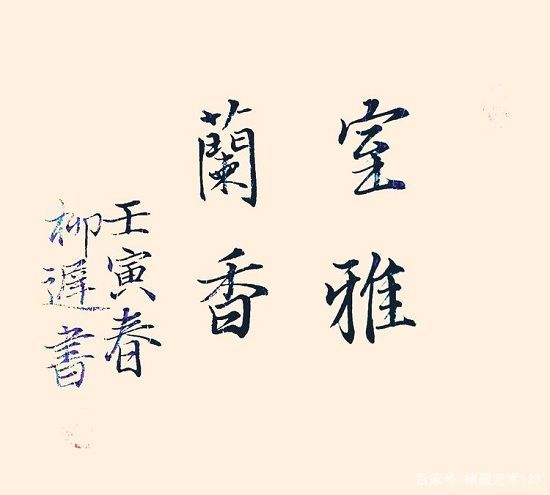 室雅
蘭香
壬寅春
柳遲書
百家号/糖墨艺术123